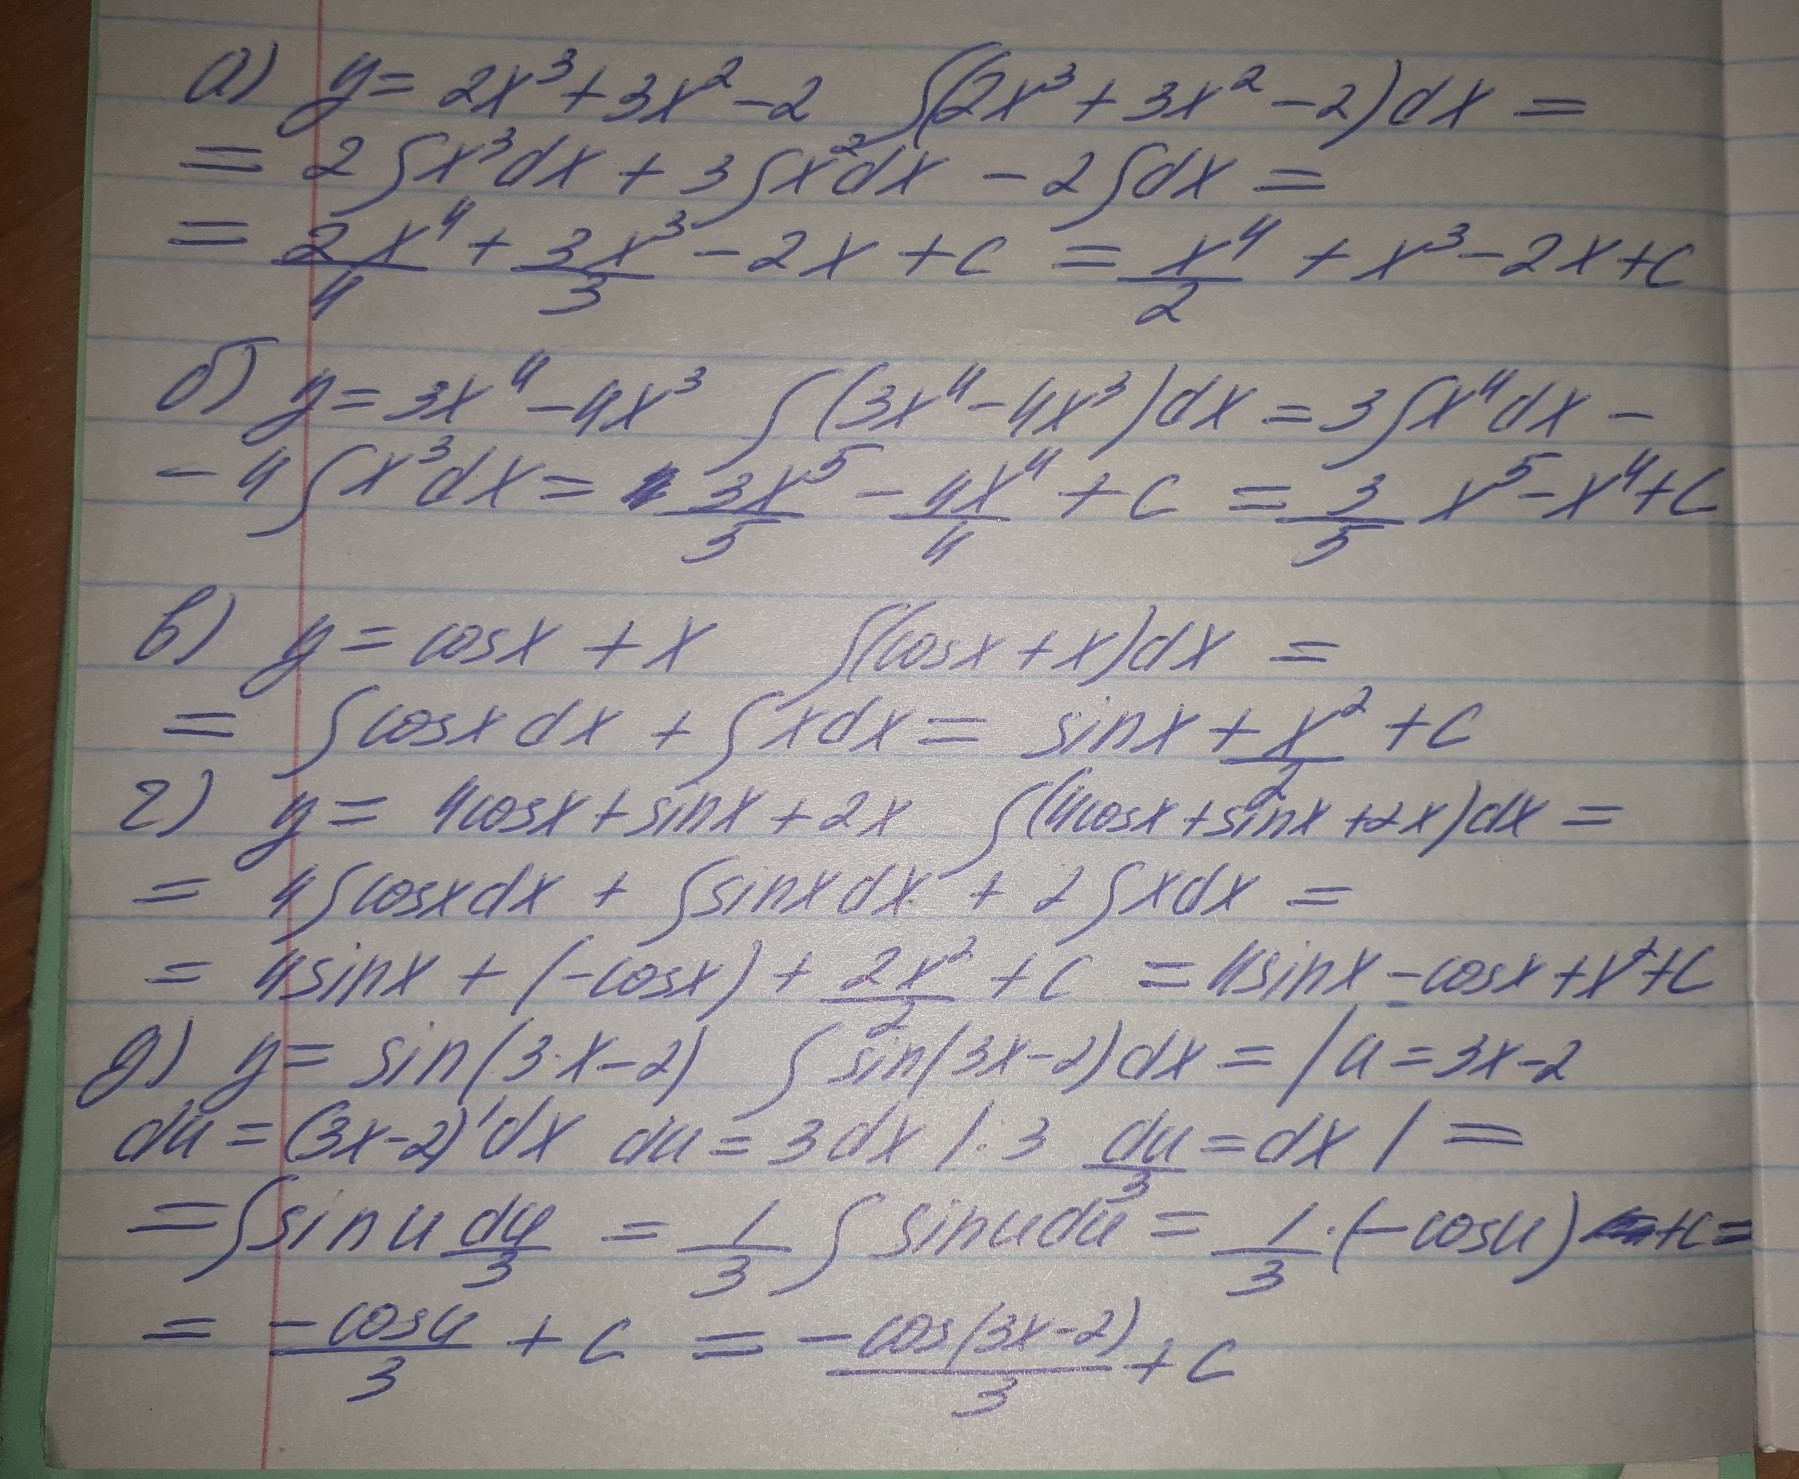 а) y = 2x³ + 3x² - 2 ∫(2x³ + 3x² - 2)dx =
= 2∫x³dx + 3∫x²dx - 2∫dx =
= 2x⁴/4 + 3x³/3 - 2x + C = x⁴/2 + x³ - 2x + C
б) y = 3x⁴ - 4x³ ∫(3x⁴ - 4x³)dx = 3∫x⁴dx -
- 4∫x³dx = 3x⁵/5 - 4x⁴/4 + C = 3/5 x⁵ - x⁴ + C
в) y = cosx + x ∫(cosx + x)dx =
= ∫cosx dx + ∫x dx = sinx + x²/2 + C
г) y = 4cosx + sinx + 2x ∫(4cosx + sinx + 2x)dx =
= 4∫cosxdx + ∫sinxdx + 2∫xdx =
= 4sinx + (-cosx) + 2x²/2 + C = 4sinx - cosx + x² + C
д) y = sin(3·x-2) ∫sin(3x-2)dx = |u = 3x-2
du = (3x-2)'dx du = 3dx |:3 du/3 = dx | =
= ∫sinu du/3 = 1/3 ∫sinudu = 1/3·(-cosu) + C =
= -cosu/3 + C = -cos(3x-2)/3 + C